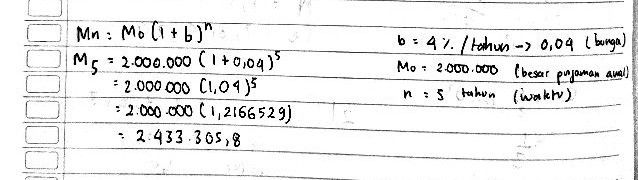 Mn = Mo (1 + b)ⁿ
M₅ = 2.000.000 (1 + 0,04)⁵
= 2.000.000 (1,04)⁵
= 2.000.000 (1,2166529)
= 2.433.305,8
b = 4 % / tahun -> 0,04 (bunga)
Mo = 2.000.000 (besar pinjaman awal)
n = 5 tahun (waktu)